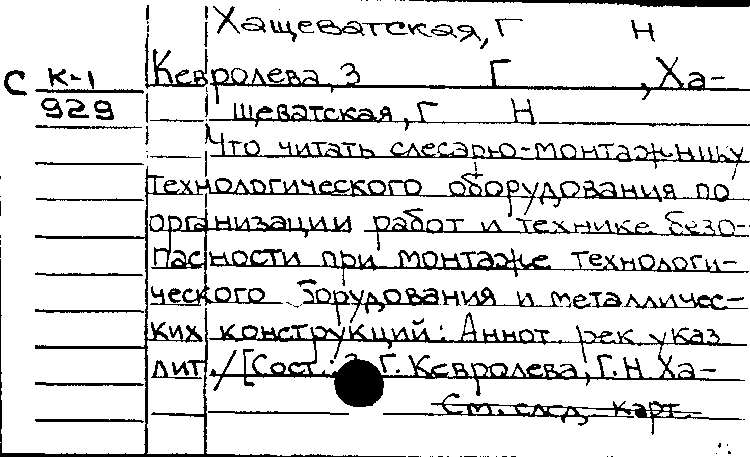 Хащеватская, Г Н
С К-1 Кевролева, З Г , Ха-
929 щеватская, Г Н
Что читать слесарю-монтажнику
технологического оборудования по
организации работ и технике безо-
пасности при монтаже технологи-
ческого борудования и металличес-
ких конструкций: Аннот. рек. указ
лит. / [Сост.: Г. Кевролева, Г. Н. Ха-
См. след. карт.